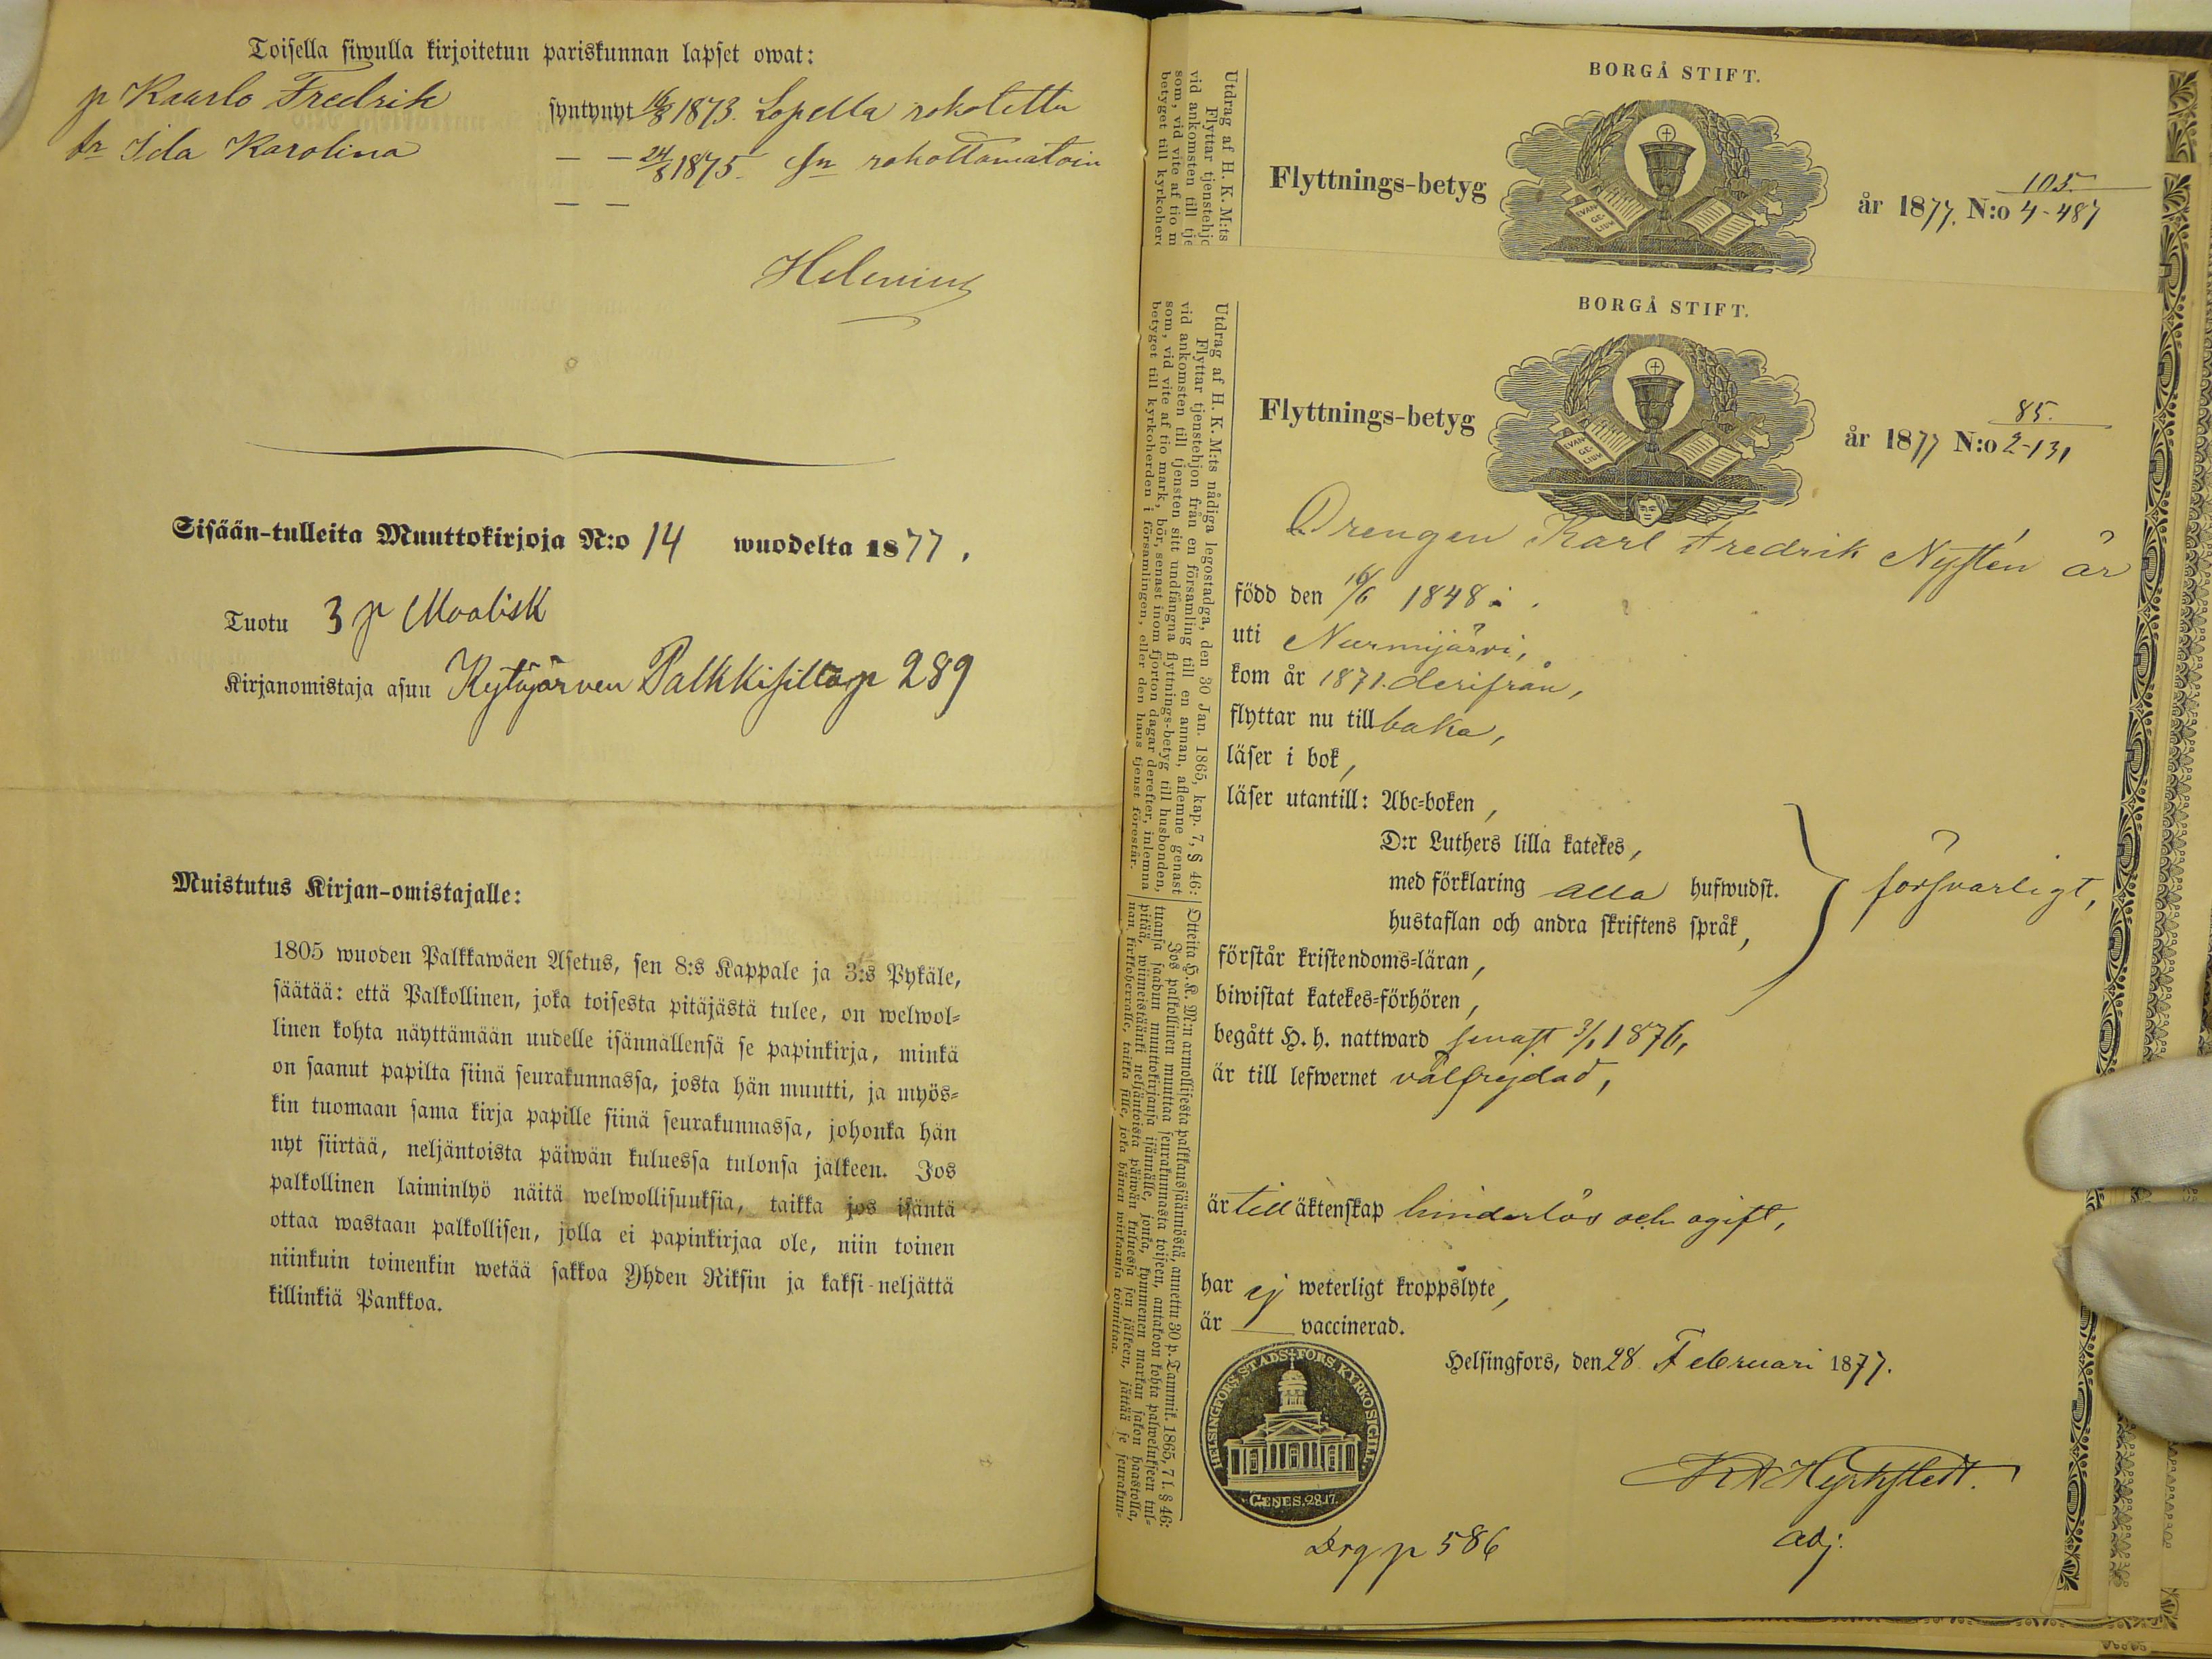 Toisella siwulla kirjoitetun pariskunnan lapset owat:
p Kaarlo Fredrik syntynyt 16/8 1873. Lopella rokotettu
tr Ida Karolina — — 24/8 1875. sn rokottamatoin
— —
Helenius
Sisään-tulleita Muuttokirjoja N:o 14 wuodelta 1877.
Tuotu 3 p Maalisk
Kirjanomistaja asuu Kytäjärven Palkkisilla p 289
Muistutus Kirjan-omistajalle:
1805 wuoden Palkkawäen Asetus, sen 8:s Kappale ja 3:s Pykäle,
säätää: että Palkollinen, joka toisesta pitäjästä tulee, on welwol=
linen kohta näyttämään uudelle isännällensä se papinkirja, minkä
on saanut papilta siinä seurakunnassa, josta hän muutti, ja myös=
kin tuomaan sama kirja papille siinä seurakunnassa, johonka hän
nyt siirtää, neljäntoista päiwän kuluessa tulonsa jälkeen. Jos
palkollinen laiminlyö näitä welwollisuuksia, taikka jos isäntä
ottaa wastaan palkollisen, jolla ei papinkirjaa ole, niin toinen
niinkuin toinenkin wetää sakkoa Yhden Riksin ja kaksi-neljättä
killinkiä Pankkoa.
BORGÅ STIFT.
Utdrag af H. K. M:ts
Flyttar tjenstehjo
vid ankomsten till tje
som, vid vite af tio m
betyget till kyrkoher
EVAN
GE-
LIUM
Flyttnings-betyg år 1877. N:o 105. 4-487
BORGÅ STIFT.
EVAN
GE-
LIUM
Flyttnings-betyg år 1877 N:o 85. 2-131
Drengen Karl Fredrik Nystén är
född den 16/6 1848 i .
uti Nurmijärvi,
kom år 1871. derifrån,
flyttar nu tillbaka,
läser i bok,
läser utantill: Abc=boken,
D:r Luthers lilla katekes,
med förklaring alla hufwudst.
hustaflan och andra skriftens språk,
försvarligt,
förstår kristendoms=läran,
biwistat katekes=förhören,
begått H. h. nattward senast 3/1 1876,
är till lefwernet välfrejdad,
är till äktenskap hinderlös och ogift,
har ej weterligt kroppslyte,
är vaccinerad.
Helsingfors, den 28 Februari 1877.
HELSINGFORS STADS FÖRS. KYRKO SIGILL
GENES. 28.17.
adj.
Drg p 586
Utdrag af H. K. M:ts nådiga legostadga, den 30 Jan. 1865, kap. 7, § 46:
Flyttar tjenstehjon från en församling till en annan, aflemne genast
vid ankomsten till tjensten sitt undfångna flyttnings-betyg till husbonden,
som, vid vite af tio mark, bör, senast inom fjorton dagar derefter, inlemna
betyget till kyrkoherden i församlingen, eller den hans tjenst förestår.
Otteita H. K. M:n armollisesta palkkaussäännöstä, annettu 30 p. Tammik. 1865, 7 l. § 46:
Jos palkollinen muuttaa seurakunnasta toiseen, antakoon kohta palwelukseen tul=
tuansa saadun muuttokirjansa isännälle, jonka, kymmenen markan sakon haastolla,
pitää, wiimeistäänki neljäntoista päiwän kuluessa sen jälkeen, jättää se seurakun=
nan kirkkoherralle, taikka sille, joka hänen wirkaansa toimittaa.